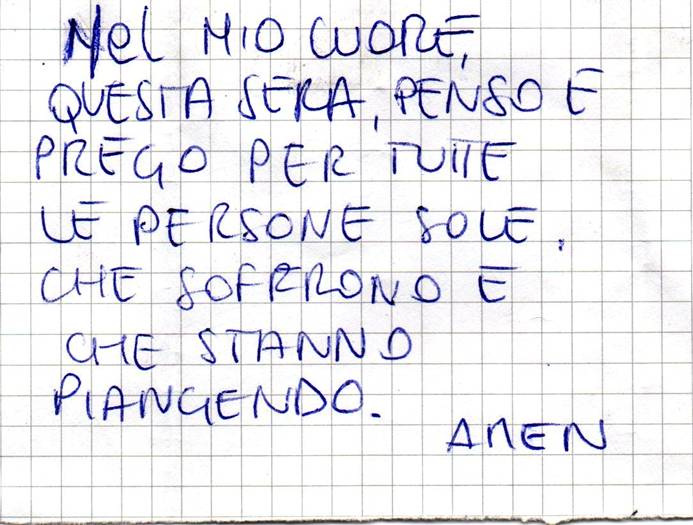 Nel MIO CUORE,
QUESTA SERA, PENSO E
PREGO PER TUTTE
LE PERSONE SOLE,
CHE SOFFRONO E
CHE STANNO
PIANGENDO.
AMEN